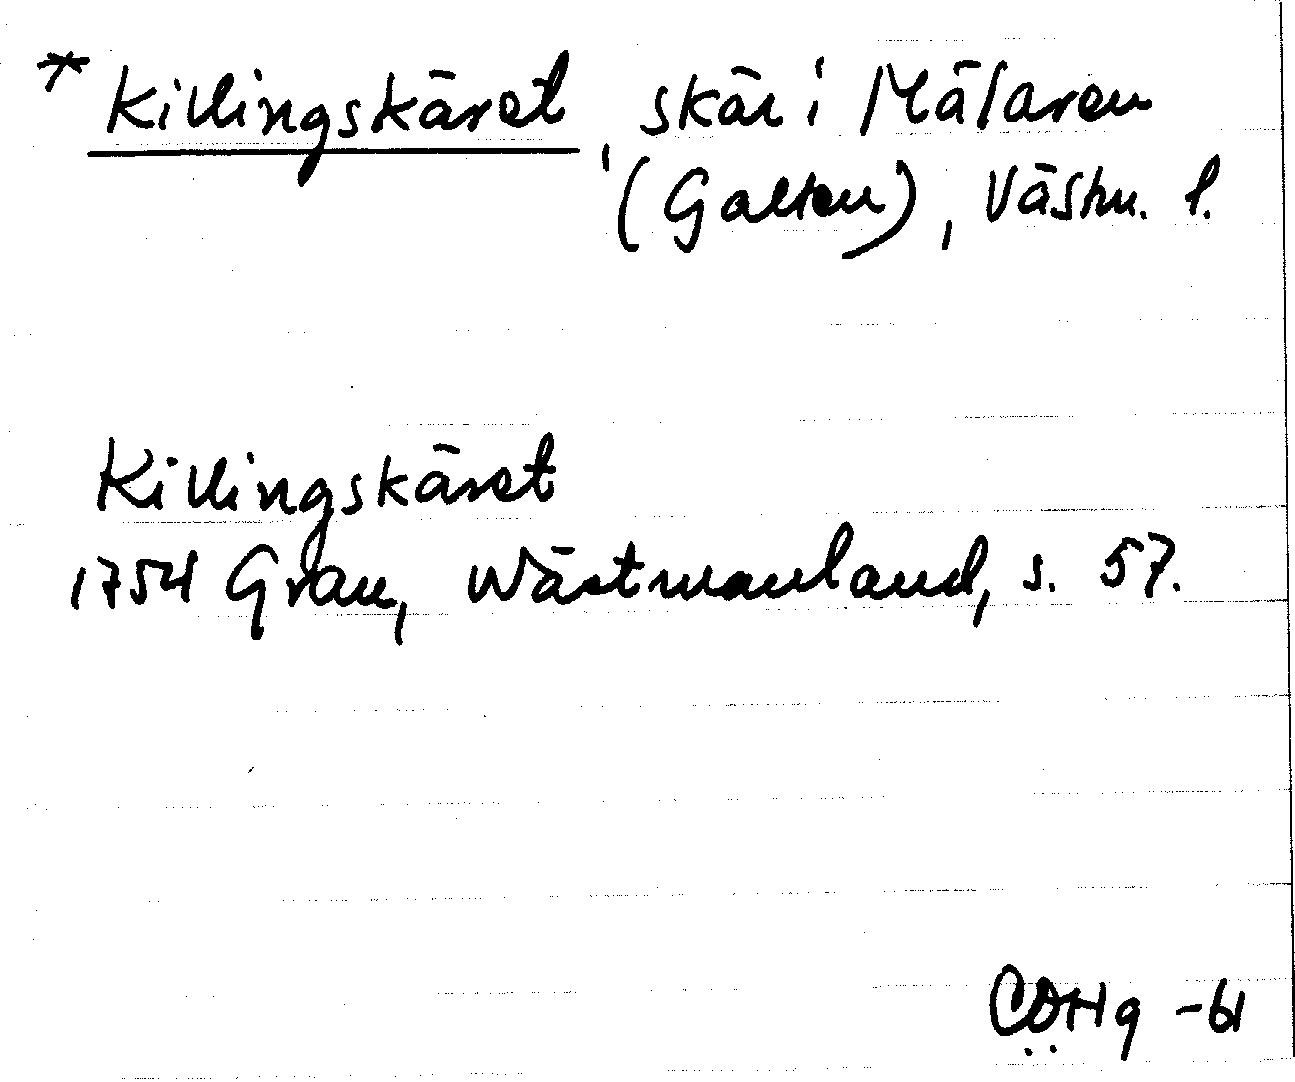 * Killingskäret, skär i Mälaren
(Galten), Västm. l.
Killingskäret
1754 Grau, Wästmanland, s. 57.
CÖHg -61